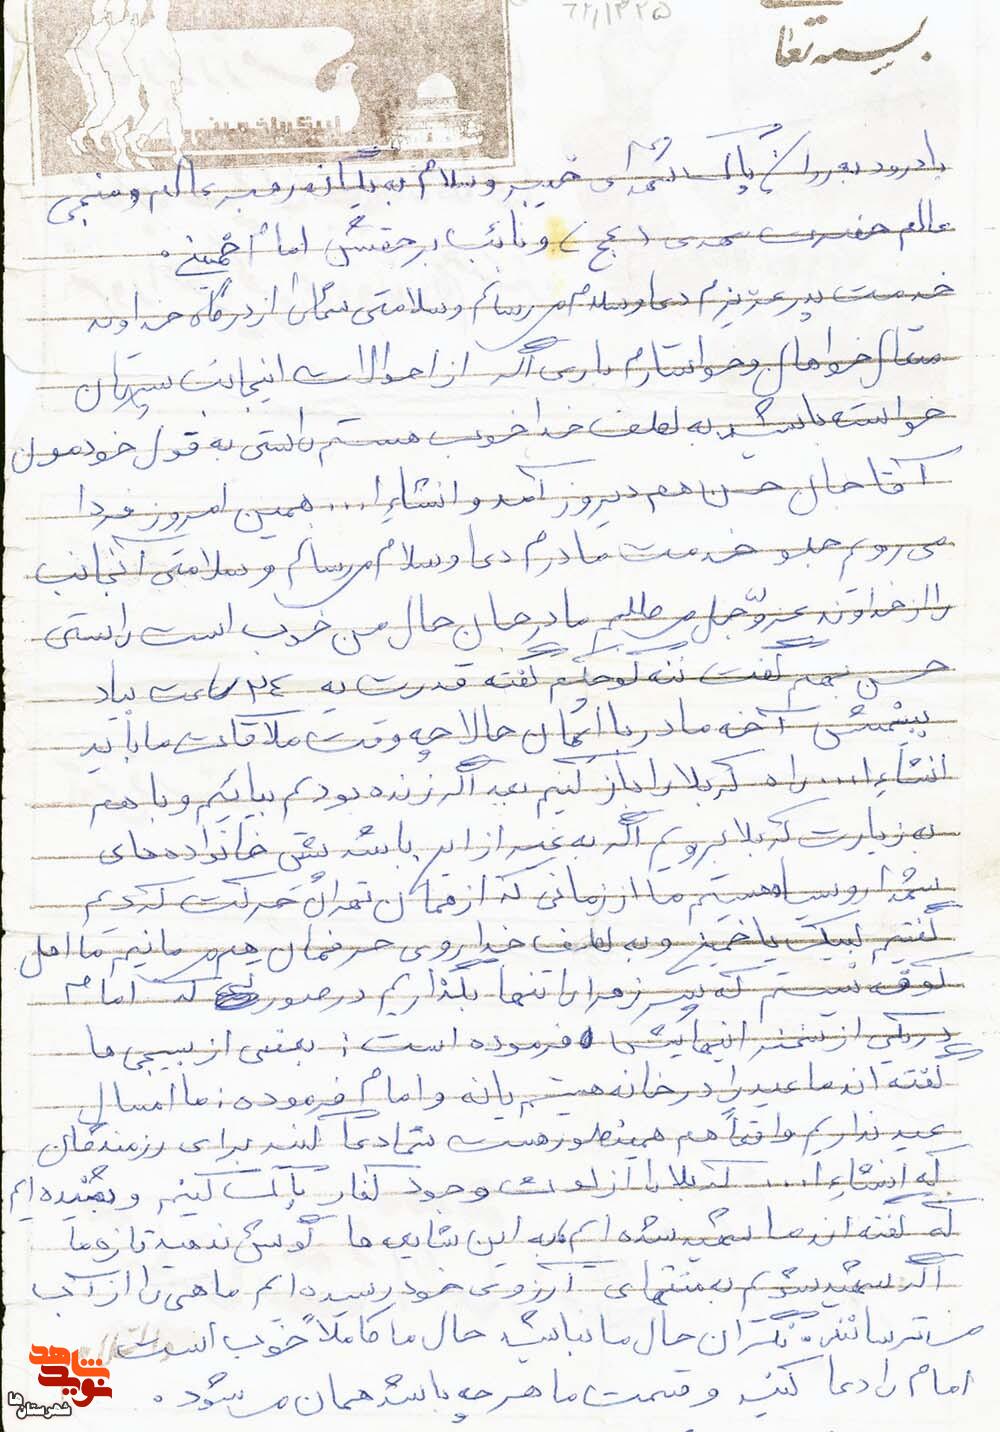 بسمه تعالی
لبیک یا خمینی
با درود به روان پاک شهدای خیبر و سلام به یگانه رهبر عالم و منجی
عالم حضرت مهدی (عج) و نائب برحقش امام خمینی.
خدمت پدر عزیزم دعا و سلام می رسانم و سلامتی شمارا از درگاه خداوند
متعال خواهان و خواستارم باری اگر از احوالات اینجانب پسرتان
خواسته باشید به لطف خدا خوب هستم راستی به قول خودمون
آقا جان حسن هم دیروز آمد و انشاءا... همین امروز فردا
می رویم جلو خدمت مادرم دعا و سلام می رسانم و سلامتی آنجانب
را از خداوند عزوّجل می طلبم مادر جان حال من خوب است راستی
حسن بهم گفت ننه کوچکم گفته قدرت یه ۲۴ ساعت بیاد
ببینمش آخه مادر با ایمان حالا چه وقت ملاقات ما باید
انشاءا... راه کربلا را باز کنیم بعد اگر زنده بودیم بیائیم و با هم
به زیارت کربلا برویم اگر به غیر از این باشد پیش خانواده های
شهدا روسیاه هستیم ما از زمانی که از تهران حرکت کردیم
گفتیم لبیک یا خمینی و به لطف خدا روی حرفمان هم می مانیم ما اهل
کوفه نیستیم که پسر زهرا را تنها بگذاریم در صورتی که امام
در یکی از سخنرانیهایش فرموده است: بعضی از بسیجی ها
گفته اند ما عید را در خانه هستیم یا نه و امام فرموده: ما امسال
عید نداریم واقعاً هم همینطور هست شما دعا کنید برای رزمندگان
که انشاءا... کربلا را از لوث وجود کفار پاک کنیم و شنیده ایم
که گفته اند ما شهید شده ایم به این شایعه ها گوش ندهید تازه ما
اگر شهید شویم به منتهای آرزوی خود رسیده ایم ماهی را از آب
می ترسانند. نگران حال ما نباشید حال ما کاملاً خوب است
امام را دعا کنید و قسمت ما هر چه باشد همان می شود.
نوید شاهد
شهرستان‌ها